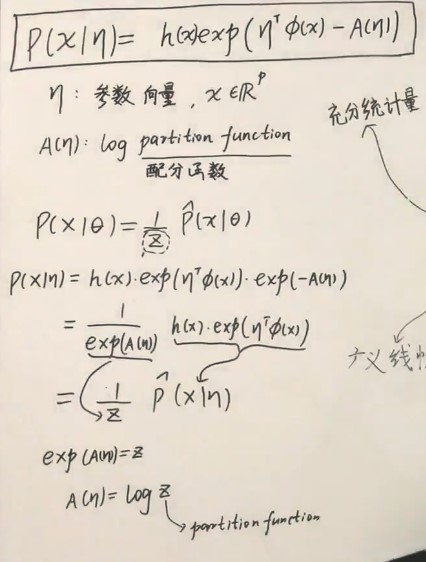 P(x|η) = h(x) exp(η^T φ(x) - A(η))
η: 参数 向量, x ∈ ℝ^p
充分统计量
A(η): log partition function
配分函数
P(x|θ) = 1/Z P̂(x|θ)
P(x|η) = h(x)·exp(η^T φ(x))·exp(-A(η))
= 1/exp(A(η)) h(x)·exp(η^T φ(x))
广义线性
= 1/Z P̂(x|η)
exp(A(η)) = Z
A(η) = log Z
partition function